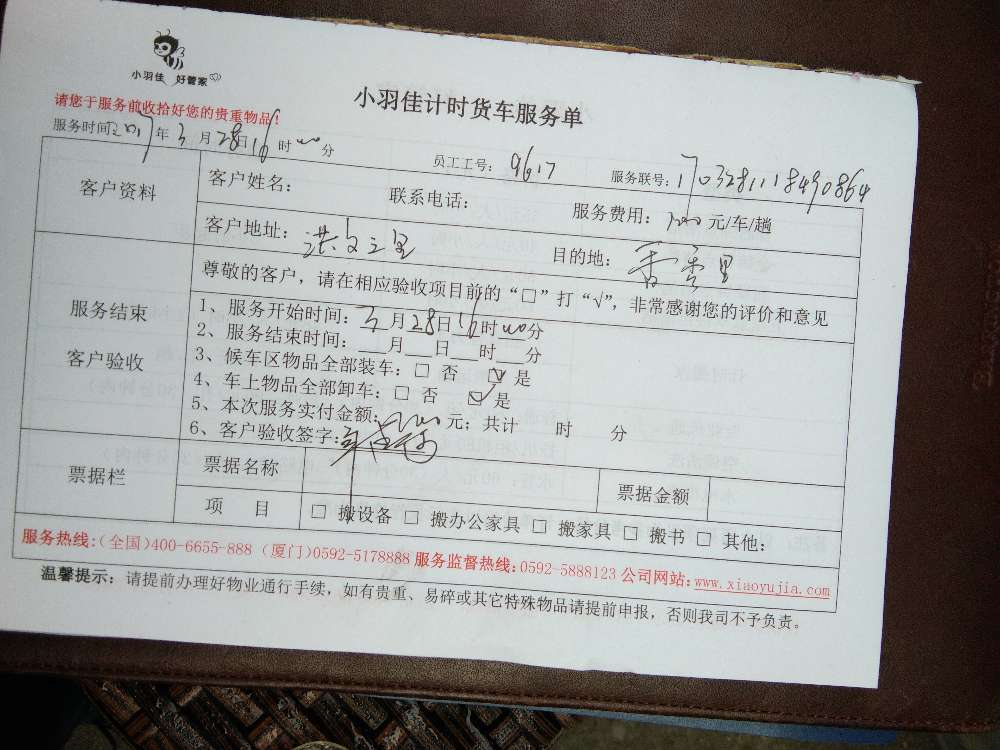 小羽佳 好管家
小羽佳计时货车服务单
请您于服务前收拾好您的贵重物品!
服务时间2017年3月28日16时00分 员工工号: 9617 服务联号: 1703281118490864
客户资料
客户姓名: 联系电话: 服务费用: 元/车/趟
客户地址: 洪文三里 目的地: 香秀里
服务结束
客户验收
尊敬的客户,请在相应验收项目前的“□”打“√”,非常感谢您的评价和意见
1、服务开始时间: 3月28日16时00分
2、服务结束时间:___月___日___时___分
3、候车区物品全部装车: □ 否 ☑ 是
4、车上物品全部卸车: □ 否 ☑ 是
5、本次服务实付金额: 元; 共计 时 分
6、客户验收签字:
票据栏
票据名称 票据金额
项 目 □ 搬设备 □ 搬办公家具 □ 搬家具 □ 搬书 □ 其他:
服务热线:(全国)400-6655-888 (厦门)0592-5178888 服务监督热线:0592-5888123 公司网站:www.xiaoyujia.com
温馨提示: 请提前办理好物业通行手续,如有贵重、易碎或其它特殊物品请提前申报,否则我司不予负责。